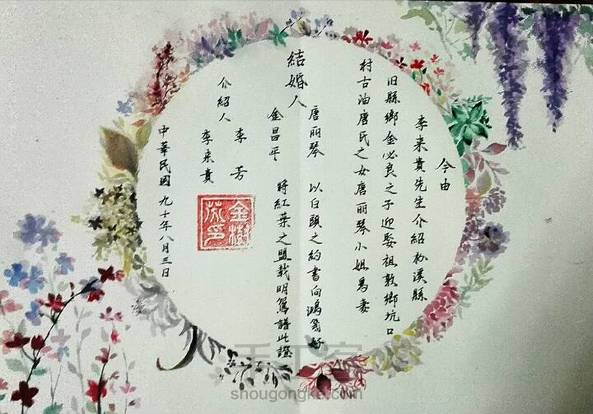 今由
李来貴先生介紹松溪縣
旧縣鄉金必良之子迎娶祖敦鄉坑口
村古油唐氏之女唐丽琴小姐為妻
結婚人
唐丽琴 以白頭之約書向鴻箋好
金昌平 將紅葉之盟載明鴛譜此證
介紹人
李芳
李来貴
中華民國九十年八月三日
金樹
手工客
shougongke.com